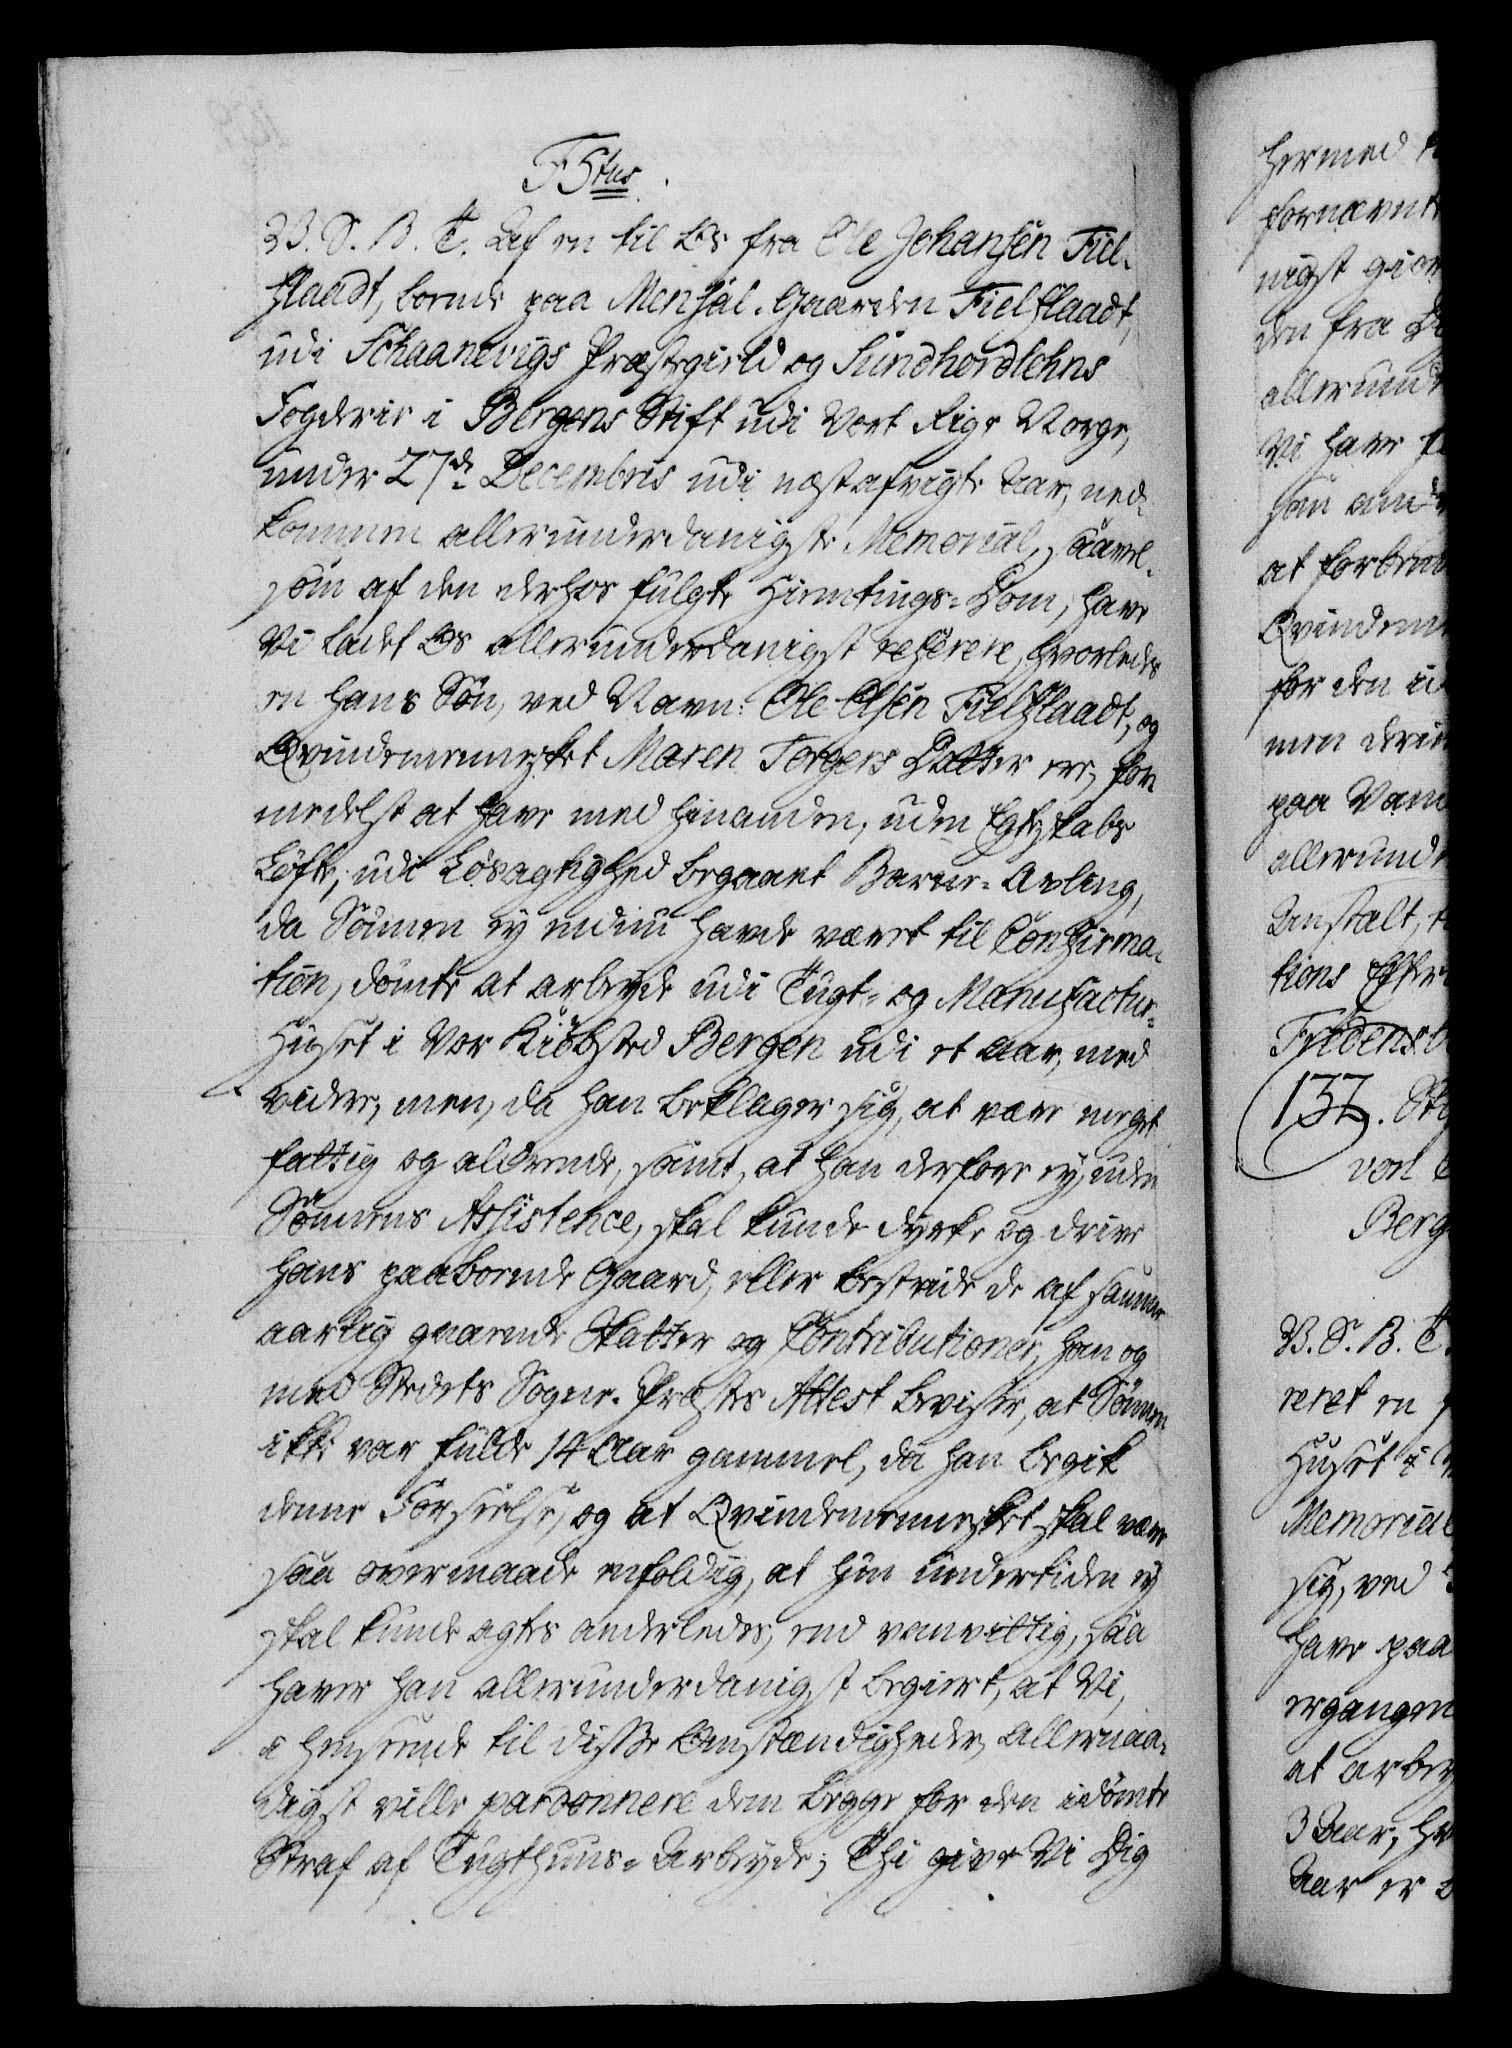 F 5tus.
V. S. B. T. Af en til Os fra Ole Johansen Fiel-
flaadt, boende paa Mensal-Gaarden Fielflaadt,
udi Schaanevigs Præstegield og Sundhordlehns
Fogderie i Bergens Stift udi Vort Rige Norge,
under 27de Decembris udi næstafvigte Aar, ned-
kommen allerunderdanigste Memorial, saavel-
som af den derhos fulgte Hiemtings-Dom, have
Vi ladet Os allerunderdanigst referere, hvorledes
en hans Søn, ved Navn: Ole Olsen Fielflaadt, og
Qvindemennesket Maren Torgers Datter ere, for-
medelst at have med hinanden, uden Egteskabs
Løfte, udi Løsagtighed begaaet Barne-Avling,
da Sønnen ey endnu havde været til Confirma-
tion, dømte at arbeyde udi Tugt- og Manufactur-
Huset i Vor Kiøbsted Bergen udi et Aar, med
videre, men, da han beklager sig, at være meget
fattig og aldrende, samt, at han derfore ey, uden
Sønnens Assistence, skal kunde dyrke og drive
hans paaboende Gaard, eller bestride de af samme
aarlig gaaende Skatter og Contributioner, han og
med Stedets Sogne-Præstes Attest beviser, at Sønnen
ikke var fulde 14 Aar gammel, da han begik
denne Forseelse, og at Qvindemennesket skal være
saa overmaade enfoldig, at hun undertiden ey
skal kunde agtes anderledes, end vanvittig, saa
haver han allerunderdanigst begiert, at Vi,
i henseende til disse Omstændigheder, Allernaa-
digst ville pardonnere dem begge for den idømte
Straf af Tugthuus-Arbeyde; Thi give Vi Dig
hermed
fornævnte
nigst giør
den fra
allerund
Vi have
saa
at forben
Qvindem
for den
men
paa Vand
allerund
Anstalt,
tions Efter
Fridensb
132.
von
Berg
V. S. B. T.
reret en
Huset i
Memorial
sig, ved
have paa
ergangen
at arbey
3 Aar,
Aar er